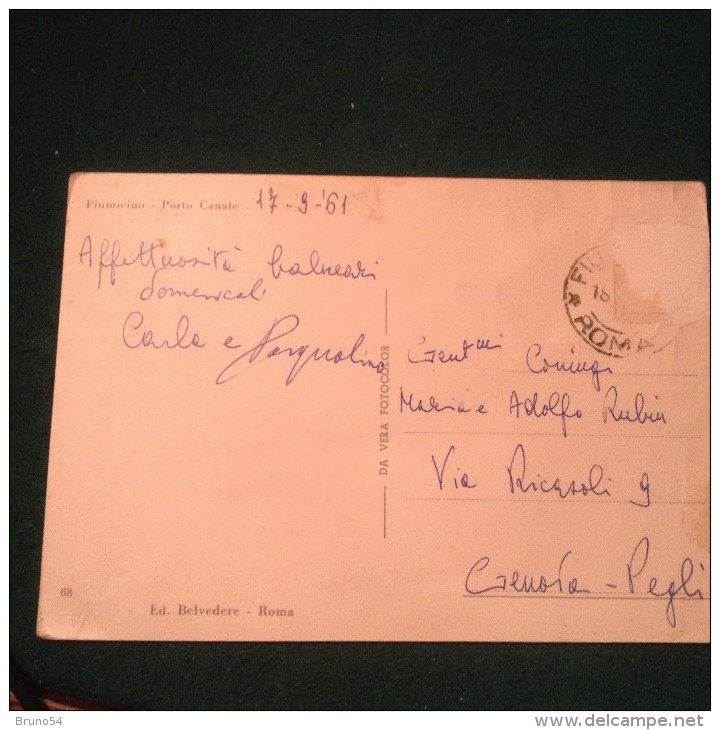 Fiumicino - Porto Canale 17-9-'61
Affettuosità balneari
domenicali
Carla e Pasqualino
Gent.mi Coniugi
Maria e Adolfo Rubin
Via Ricasoli 9
Genova - Pegli
DA VERA FOTOCOLOR
FIU
18
ROMA
68
Ed. Belvedere - Roma
Bruno54
delcampe.net